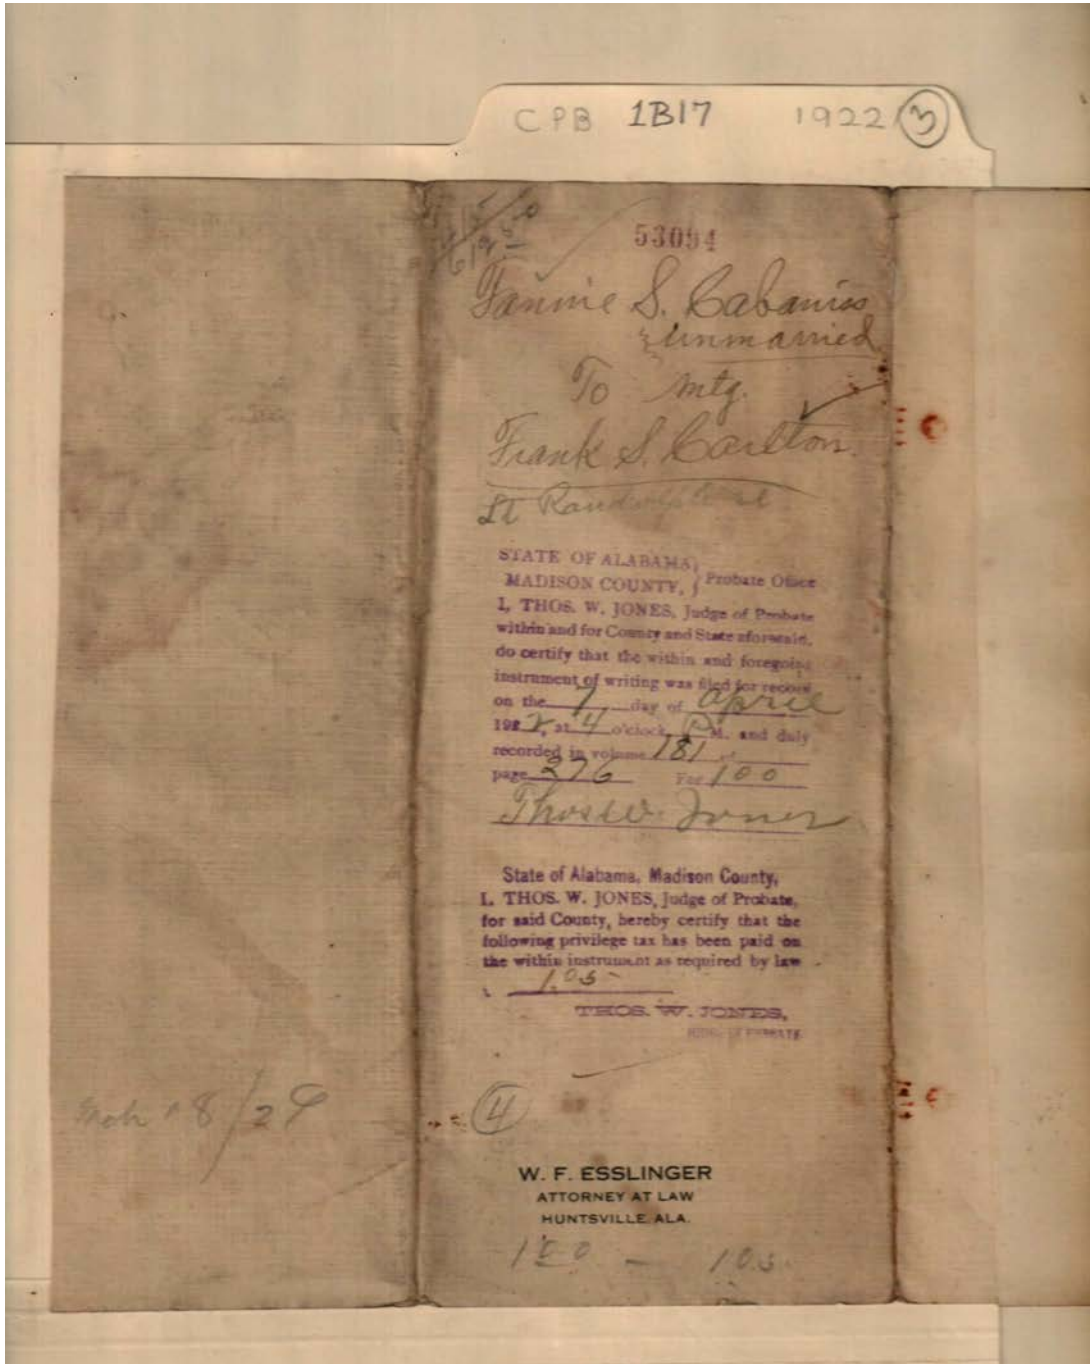 CPB 1B17 1922 3
53094
Fannie S. Cabaniss
unmarried
To mtg.
Frank S. Carlton.
Lt Randolph St
STATE OF ALABAMA,
MADISON COUNTY, } Probate Office
I, THOS. W. JONES, Judge of Probate
within and for County and State aforesaid,
do certify that the within and foregoing
instrument of writing was filed for record
on the 7 day of April
1922, at 4 o'clock P M. and duly
recorded in volume 181
page 276 Fee 100
Thos W. Jones
State of Alabama, Madison County,
I, THOS. W. JONES, Judge of Probate,
for said County, hereby certify that the
following privilege tax has been paid on
the within instrument as required by law
1.05
THOS. W. JONES,
JUDGE OF PROBATE
8/29
4
W. F. ESSLINGER
ATTORNEY AT LAW
HUNTSVILLE, ALA.
100 - 105